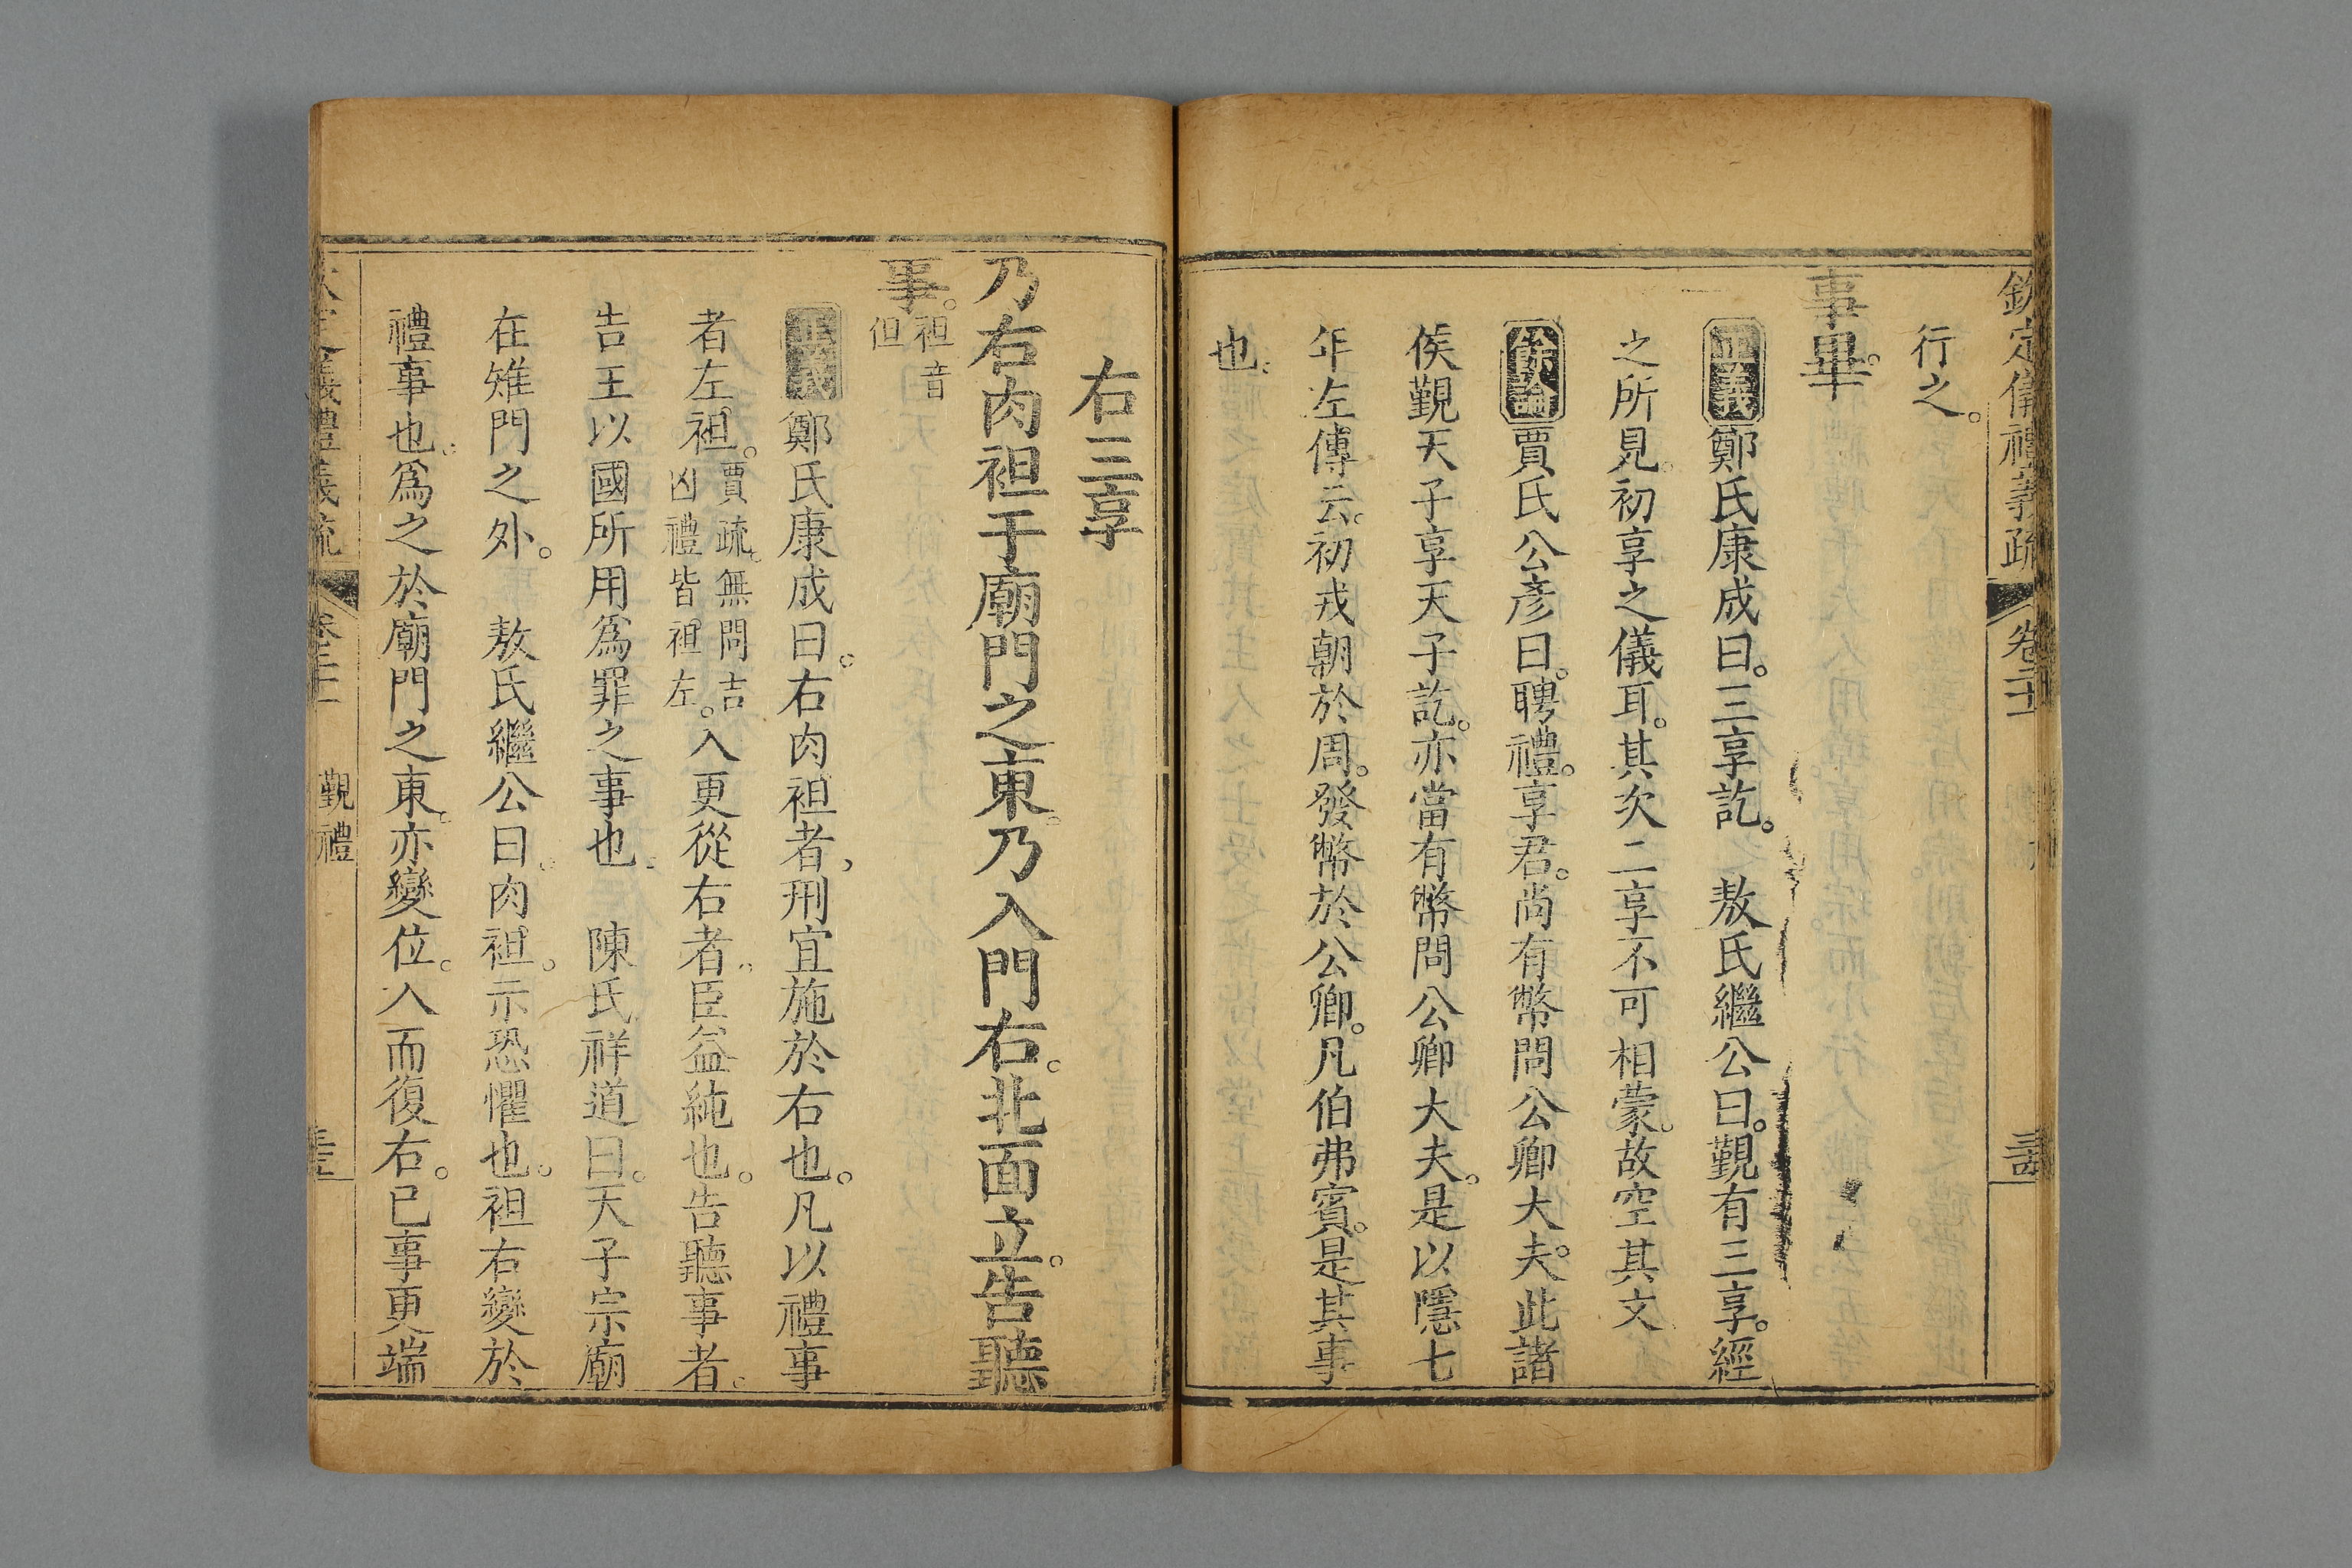 欽定儀禮義疏 卷二十一
行之。
事畢。
正義鄭氏康成曰。三享訖。 敖氏繼公曰。覲有三享。經
之所見。初享之儀耳。其次二享不可相蒙。故空其文
餘論賈氏公彥曰。聘禮。享君。尚有幣問公卿大夫。此諸
侯覲天子享天子訖。亦當有幣問公卿大夫。是以隱七
年左傳云。初戎朝於周。發幣於公卿。凡伯弗賓。是其事
也。
右三享
乃右肉袒于廟門之東。乃入門右。北面立。告聽
事。袒音但
正義鄭氏康成曰。右肉袒者,刑宜施於右也。凡以禮事
者左袒。賈疏。無問吉凶禮皆袒左。入更從右者。臣益純也。告聽事者。
告王以國所用爲罪之事也。 陳氏祥道曰。天子宗廟
在雉門之外。 敖氏繼公曰。肉袒。示恐懼也。袒右變於
禮事也。爲之於廟門之東。亦變位。入而復右。已事更端
義禮義疏 覲禮